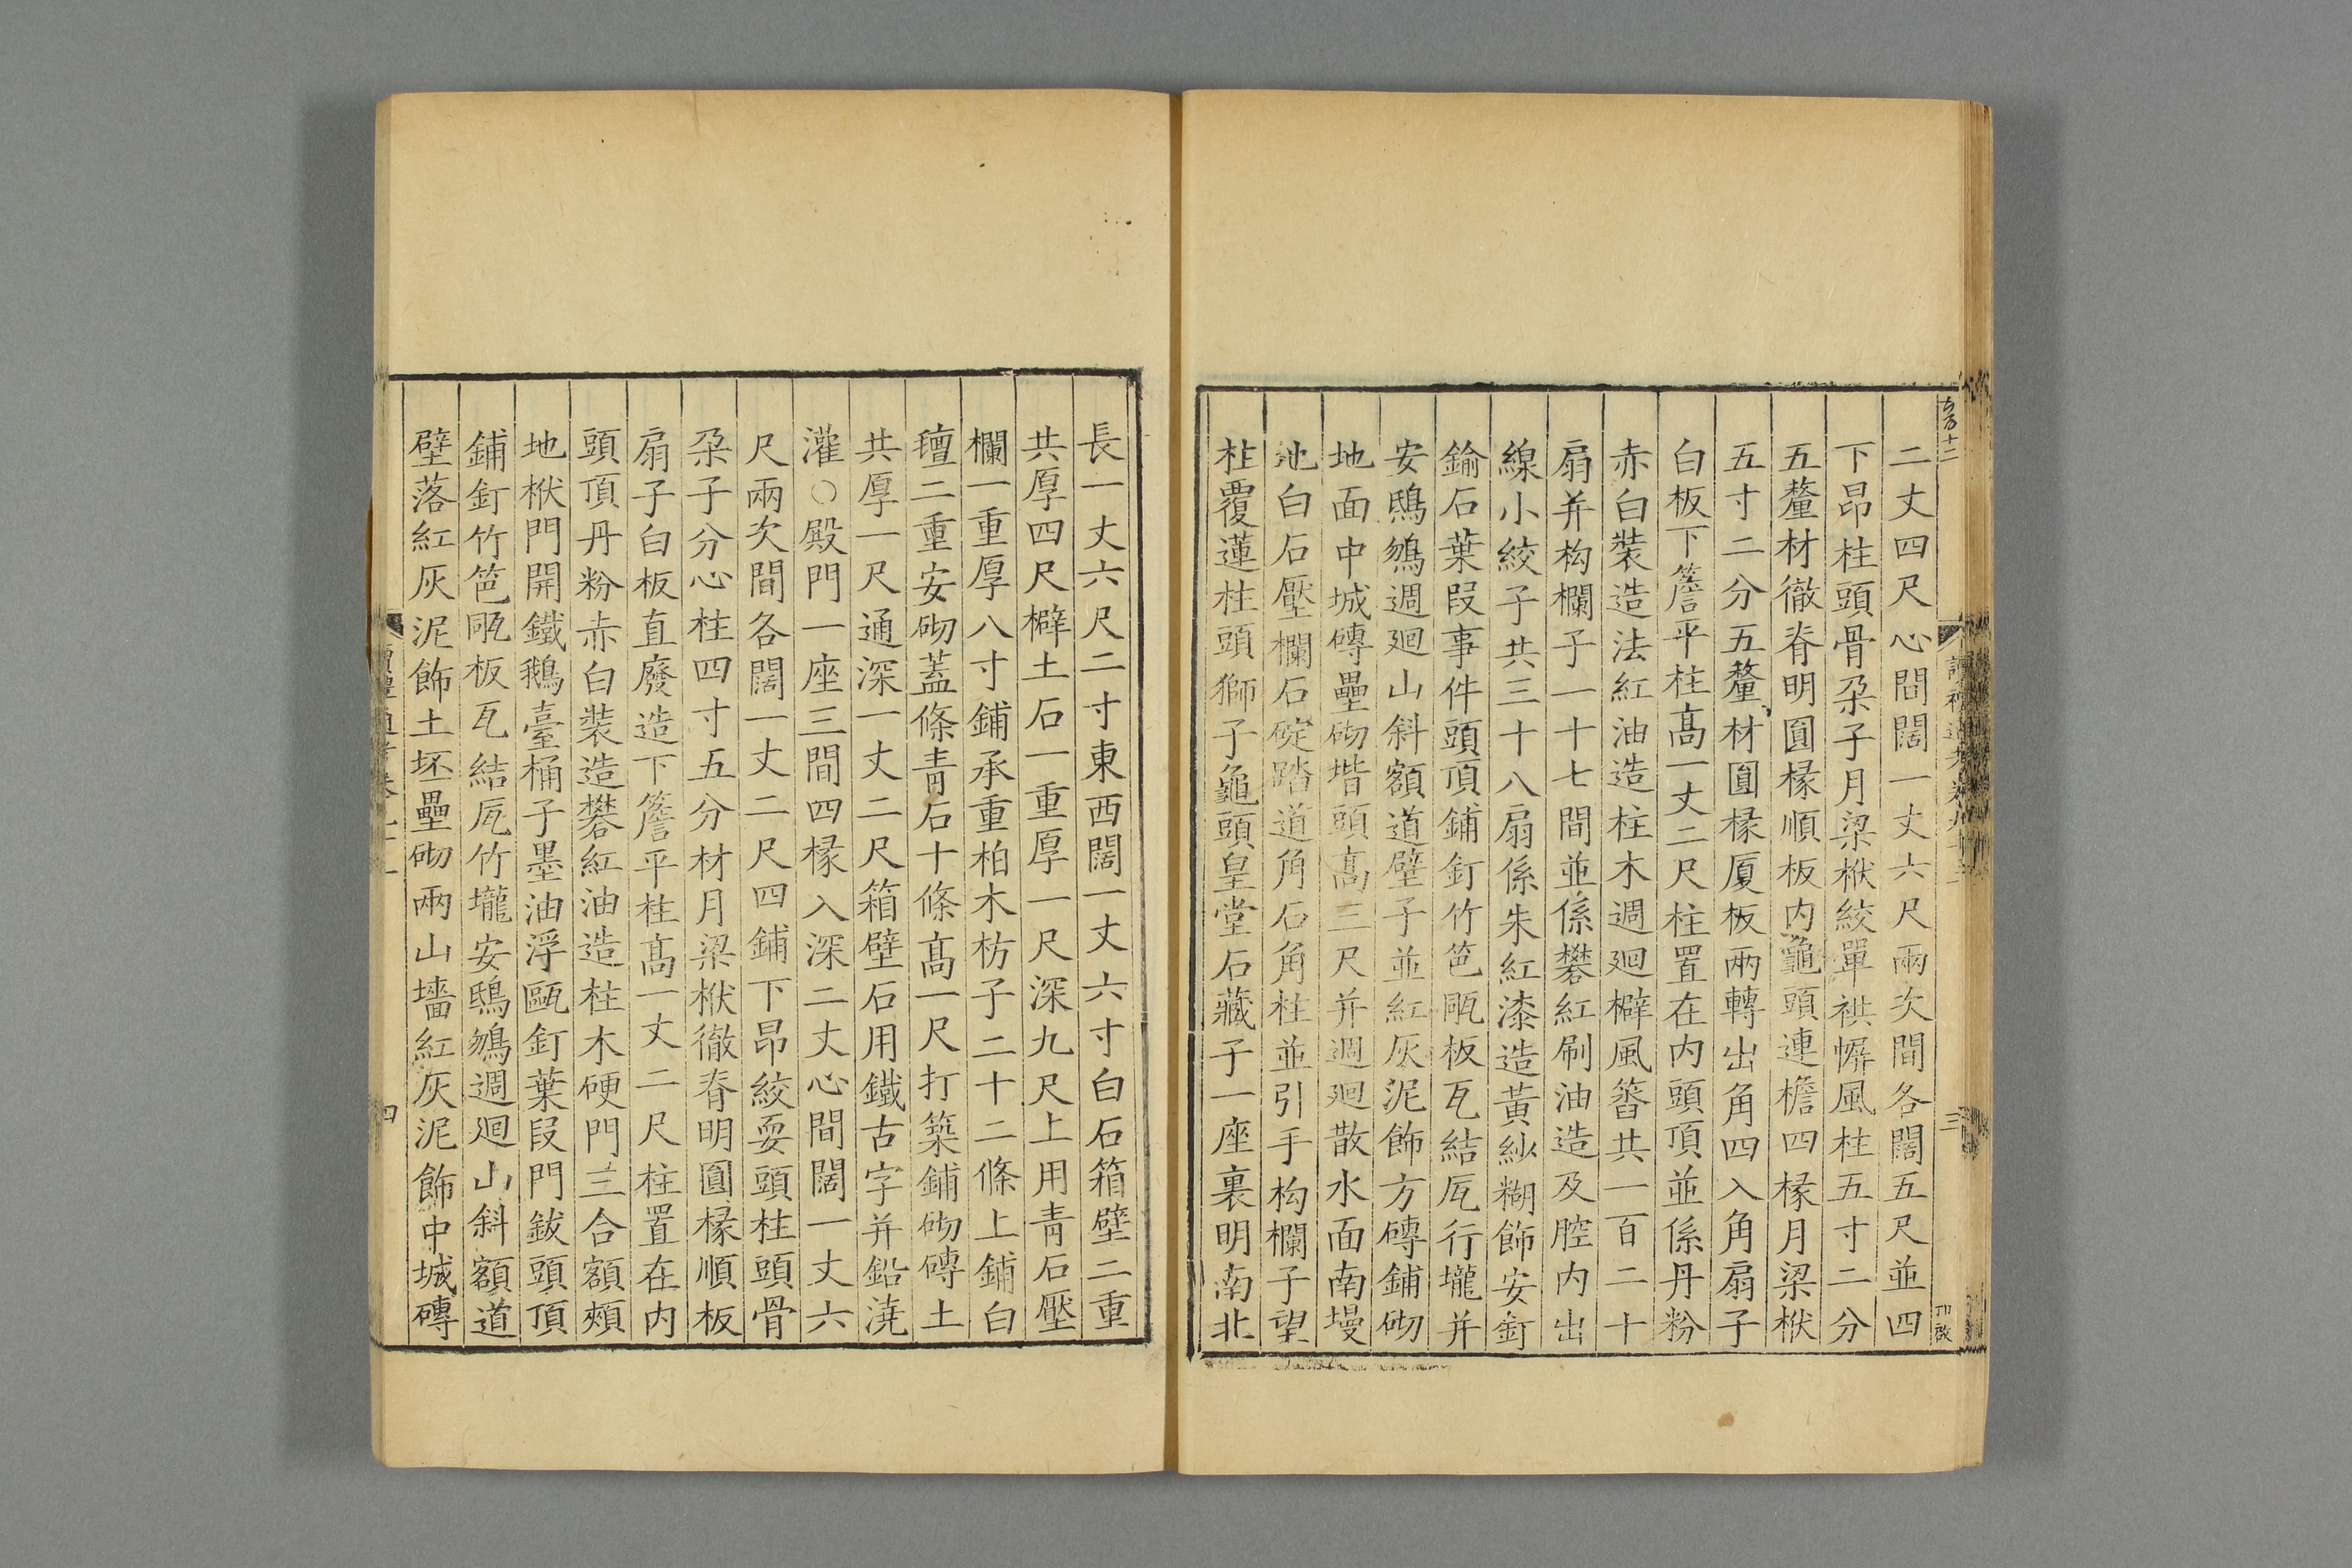 二丈四尺心間闊一丈六尺兩次間各闊五尺並四
下昂柱頭骨朶子月梁栿絞單栱㡤風柱五寸二分
五釐材徹脊明圓椽順板内龜頭連檐四椽月梁栿
五寸二分五釐材圓椽厦板兩轉出角四入角扇子
白板下簷平柱髙一丈二尺柱置在内頭頂並係丹粉
赤白裝造法紅油造柱木週廻檘風簭共一百二十
扇并枸欄子一十七間並係礬紅刷油造及腔内出
線小絞子共三十八扇係朱紅漆造黄紗糊飾安釘
鍮石葉段事件頭頂鋪釘竹笆㼧板瓦結瓦行壠并
安鴟鵂週廻山斜額道壁子並紅灰泥飾方磚鋪砌
地面中城磚壘砌堦頭髙三尺并週廻散水面南墁
地白石壓欄石碇踏道角石角柱並引手枸欄子望
柱覆蓮柱頭獅子龜頭皇堂石藏子一座裏明南北
長一丈六尺二寸東西闊一丈六寸白石箱壁二重
共厚四尺檘土石一重厚一尺深九尺上用青石壓
欄一重厚八寸鋪承重柏木枋子二十二條上鋪白
氊二重安砌蓋條青石十條髙一尺打築鋪砌磚土
共厚一尺通深一丈二尺箱壁石用鐵古字并鉛澆
灌○殿門一座三間四椽入深二丈心間闊一丈六
尺兩次間各闊一丈二尺四鋪下昂絞耍頭柱頭骨
朶子分心柱四寸五分材月梁栿徹脊明圓椽順板
扇子白板直廢造下簷平柱髙一丈二尺柱置在内
頭頂丹粉赤白裝造礬紅油造柱木硬門三合額頰
地栿門開鐵鵝臺桶子墨油浮甌釘葉段門鈸頭頂
鋪釘竹笆㼧板瓦結瓦竹壠安鴟鵂週廻山斜額道
壁落紅灰泥飾土坯壘砌兩山墻紅灰泥飾中城磚
三
四